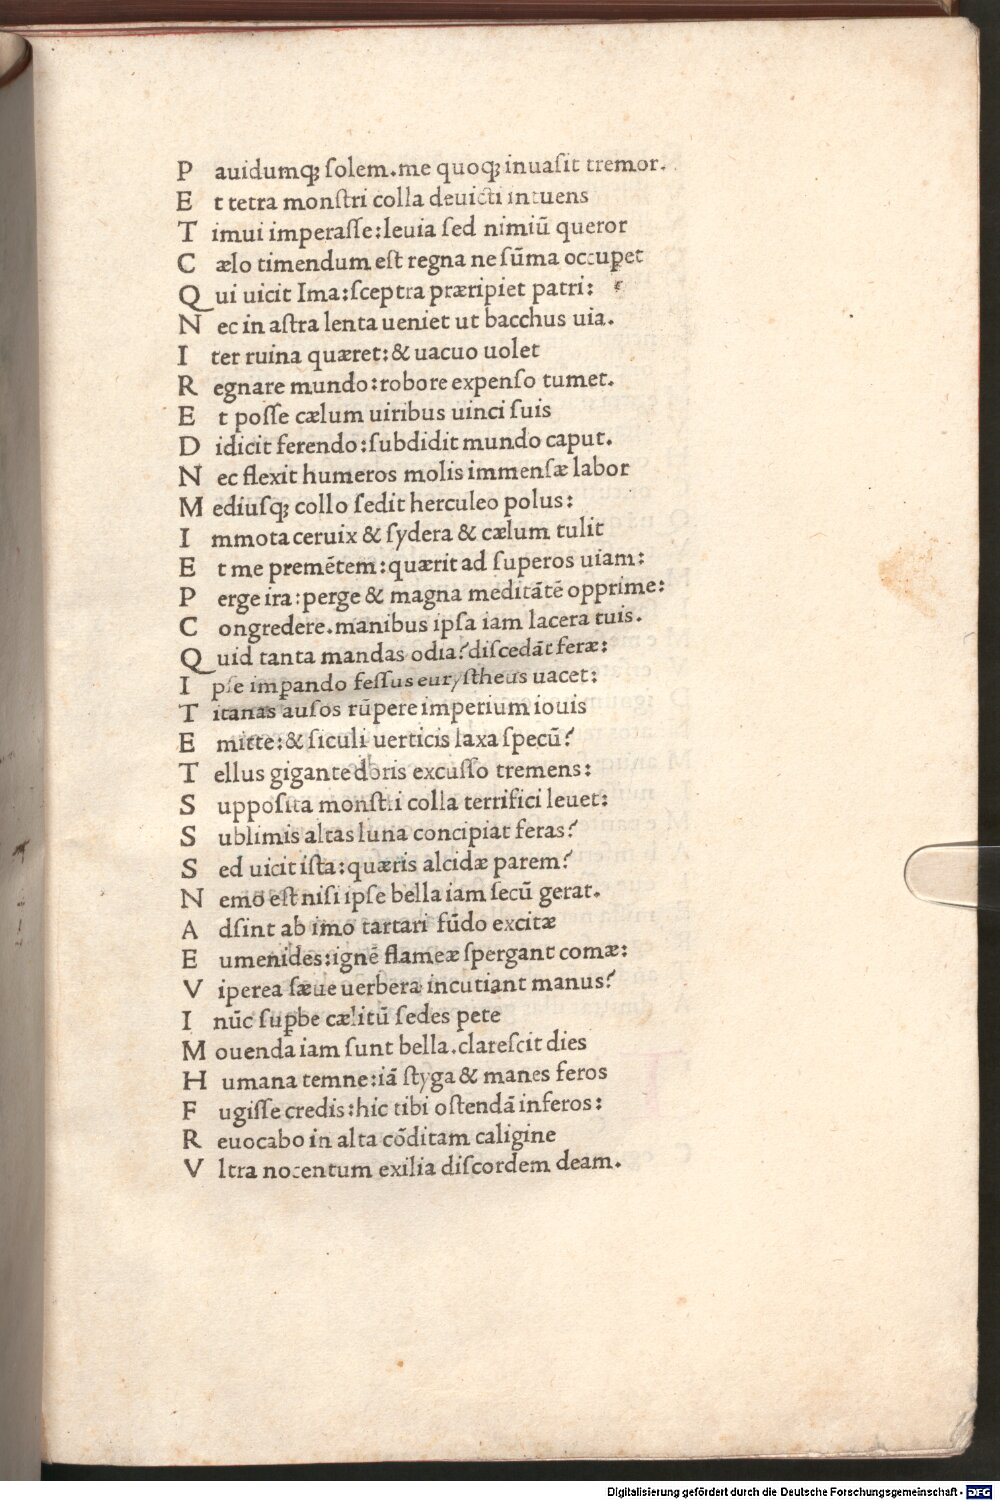 P auidumq; ſolem.me quoq; inuaſit tremor.
E t tetra monſtri colla deuicti intuens
T imui imperaſſe:leuia ſed nimiū queror
C ælo timendum eſt regna ne ſūma occupet
Q ui uicit Ima:ſceptra præripiet patri:
N ec in aſtra lenta ueniet ut bacchus uia.
I ter ruina quæret:& uacuo uolet
R egnare mundo:robore expenſo tumet.
E t poſſe cælum uiribus uinci ſuis
D idicit ferendo:ſubdidit mundo caput.
N ec flexit humeros molis immenſæ labor
M ediuſq; collo ſedit herculeo polus:
I mmota ceruix & ſydera & cælum tulit
E t me premētem:quærit ad ſuperos uiam:
P erge ira:perge & magna meditātē opprime:
C ongredere.manibus ipſa iam lacera tuis.
Q uid tanta mandas odia?diſcedāt feræ:
I pſe imꝑando feſſus euryſtheus uacet:
T itanas auſos rūpere imperium iouis
E mitte:& ſiculi uerticis laxa ſpecū?
T ellus gigante doris excuſſo tremens:
S uppoſita monſtri colla terrifici leuet:
S ublimis altas luna concipiat feras?
S ed uicit iſta:quæris alcidæ parem?
N emo eſt niſi ipſe bella iam ſecū gerat.
A dſint ab imo tartari fūdo excitæ
E umenides:ignē flameæ ſpergant comæ:
V iperea ſæue uerbera incutiant manus?
I nūc ſuꝑbe cælitū ſedes pete
M ouenda iam ſunt bella.clareſcit dies
H umana temne:iā ſtyga & manes feros
F ugiſſe credis:hic tibi oſtendā inferos:
R euocabo in alta cōditam caligine
V ltra nocentum exilia diſcordem deam.
Digitalisierung gefördert durch die Deutsche Forschungsgemeinschaft - DFG